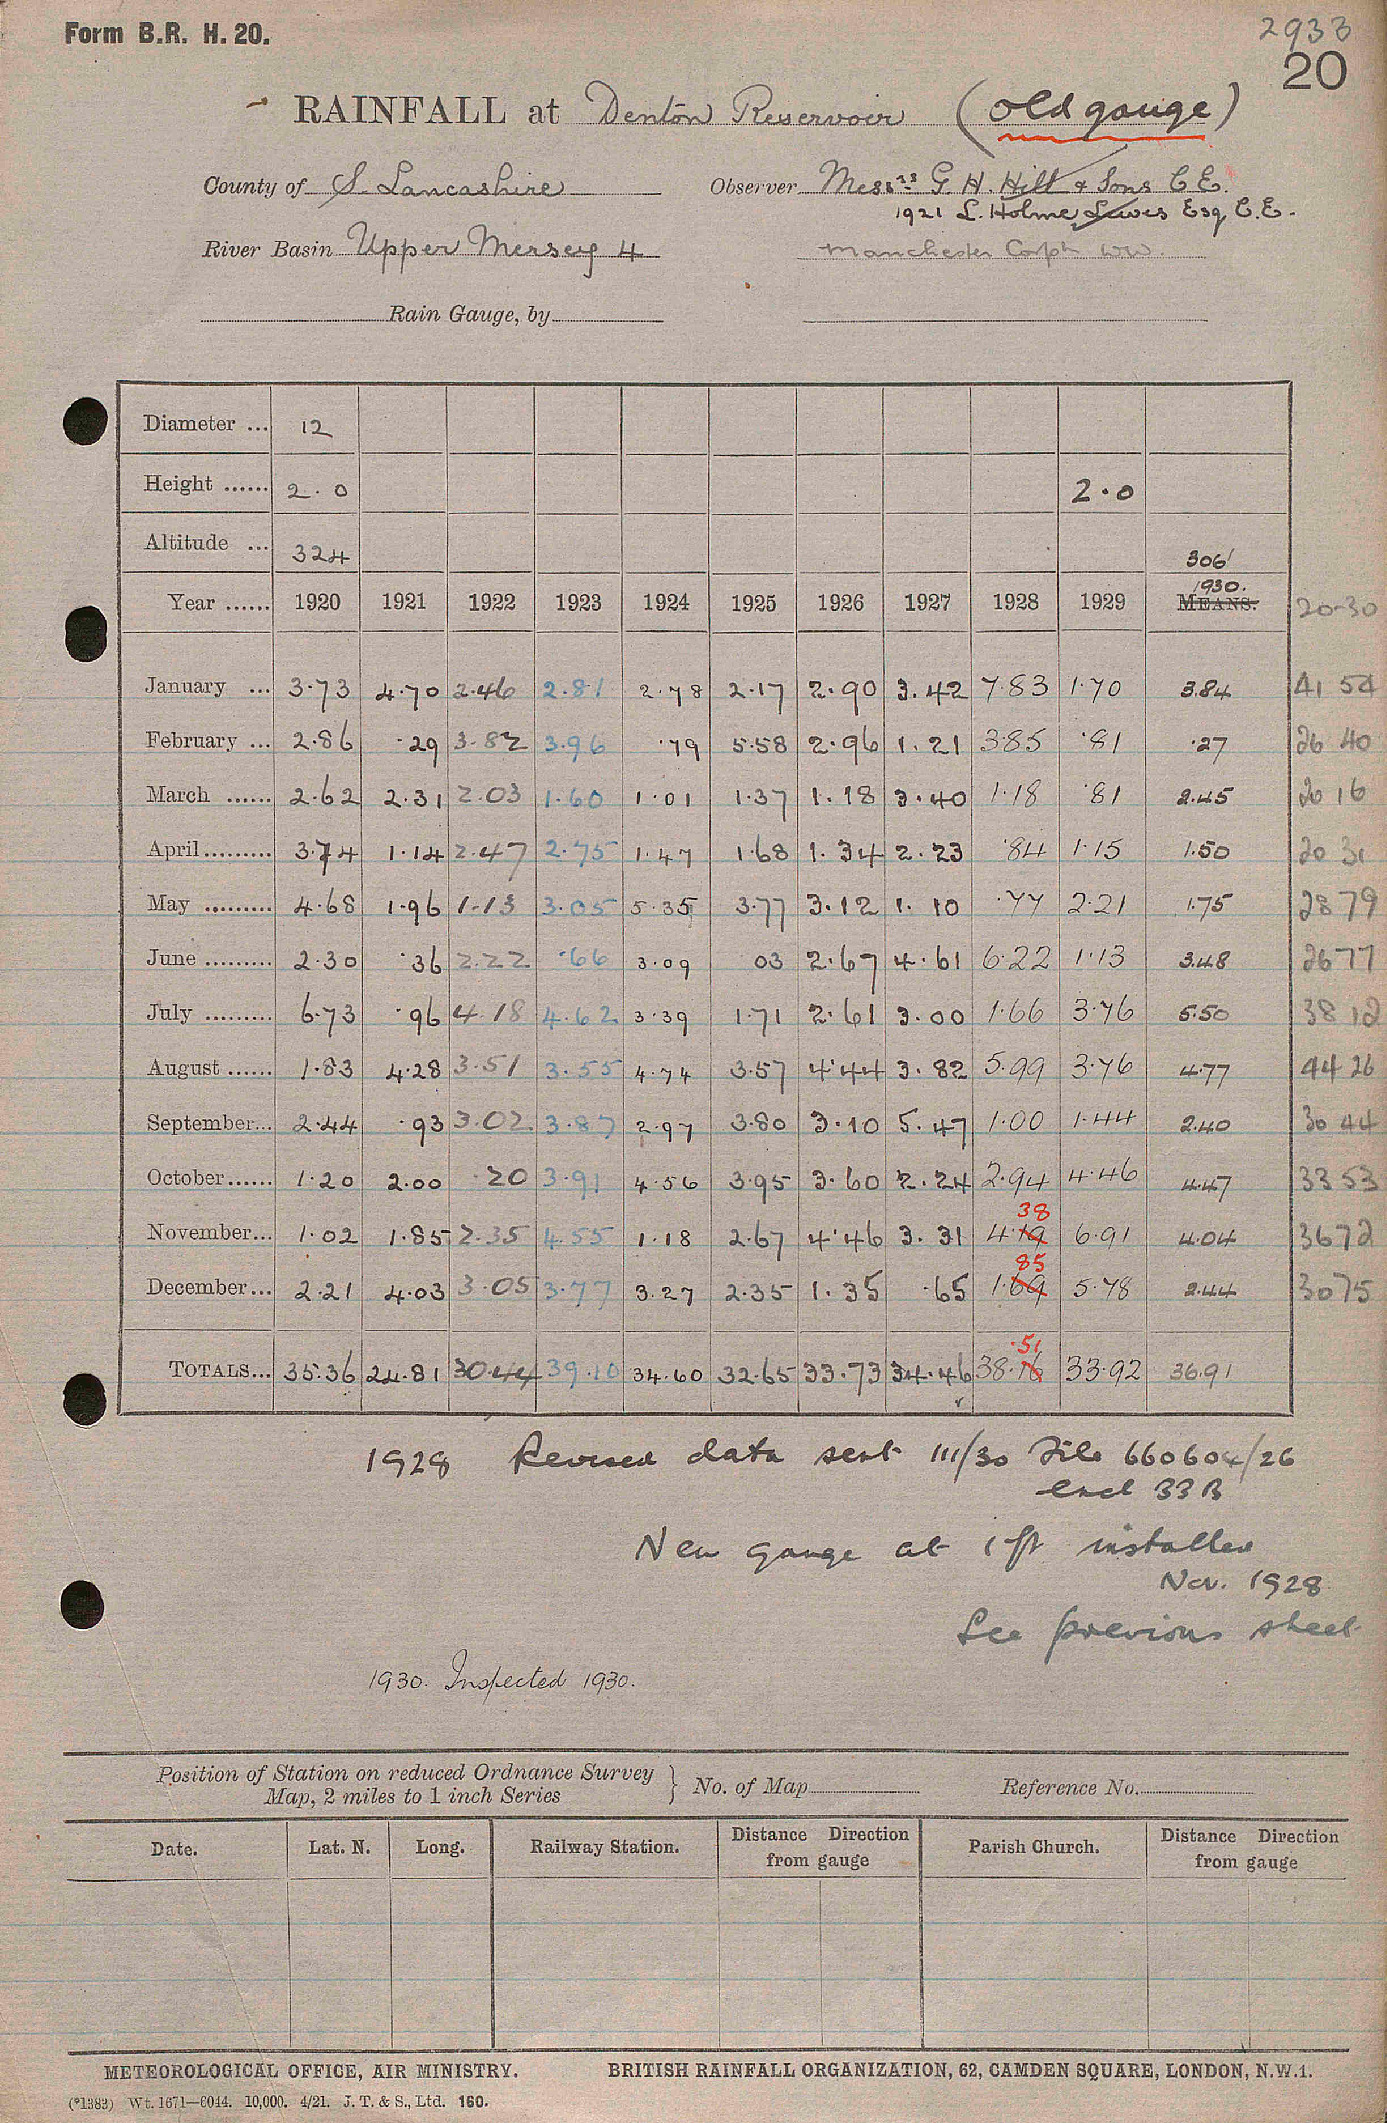 Form B.R. H. 20.
2933
20
RAINFALL at Denton Reservoir (old gauge)
County of S. Lancashire
Observer Messrs G. H. Hill & Sons C.E.
1921 L. Holme Lewis Esq C.E.
River Basin Upper Mersey 4
Manchester Corptn WW.
Rain Gauge, by
Diameter ... 12
Height ...... 2.0 2.0
Altitude ... 324 306'
Year ...... 1920 1921 1922 1923 1924 1925 1926 1927 1928 1929 1930. MEANS. 20-30
January ... 3.73 4.70 2.46 2.81 2.78 2.17 2.90 3.42 7.83 1.70 3.84 41 54
February ... 2.86 .29 3.82 3.96 .79 5.58 2.96 1.21 3.85 .81 .27 26 40
March ...... 2.62 2.31 2.03 1.60 1.01 1.37 1.18 3.40 1.18 .81 2.45 20 16
April ......... 3.74 1.14 2.47 2.75 1.47 1.68 1.34 2.23 .84 1.15 1.50 20 31
May ......... 4.68 1.96 1.13 3.05 5.35 3.77 3.12 1.10 .77 2.21 1.75 28 79
June ......... 2.30 .36 2.22 .66 3.09 03 2.67 4.61 6.22 1.13 3.48 26 77
July ......... 6.73 .96 4.18 4.62 3.39 1.71 2.61 3.00 1.66 3.76 5.50 38 12
August ...... 1.83 4.28 3.51 3.55 4.74 3.57 4.44 3.82 5.99 3.76 4.77 44 26
September... 2.44 .93 3.02 3.87 2.97 3.80 3.10 5.47 1.00 1.44 2.40 30 44
October...... 1.20 2.00 .20 3.91 4.56 3.95 3.60 2.24 2.94 4.46 4.47 33 53
38
November... 1.02 1.85 2.35 4.55 1.18 2.67 4.46 3.31 4.19 6.91 4.04 36 72
85
December... 2.21 4.03 3.05 3.77 3.27 2.35 1.35 .65 1.69 5.78 2.44 30 75
.51
TOTALS... 35.36 24.81 30.44 39.10 34.60 32.65 33.73 34.46 38.16 33.92 36.91
1928 Revised data sent 1/1/30 File 660604/26
encl 33B
New gauge at 1 ft installed
Nov. 1928
See previous sheet
1930. Inspected 1930.
Position of Station on reduced Ordnance Survey
Map, 2 miles to 1 inch Series } No. of Map Reference No.
Date. Lat. N. Long. Railway Station. Distance Direction from gauge Parish Church. Distance Direction from gauge
METEOROLOGICAL OFFICE, AIR MINISTRY. BRITISH RAINFALL ORGANIZATION, 62, CAMDEN SQUARE, LONDON, N.W.1.
(*1383) Wt. 1671—6044. 10,000. 4/21. J. T. & S., Ltd. 160.